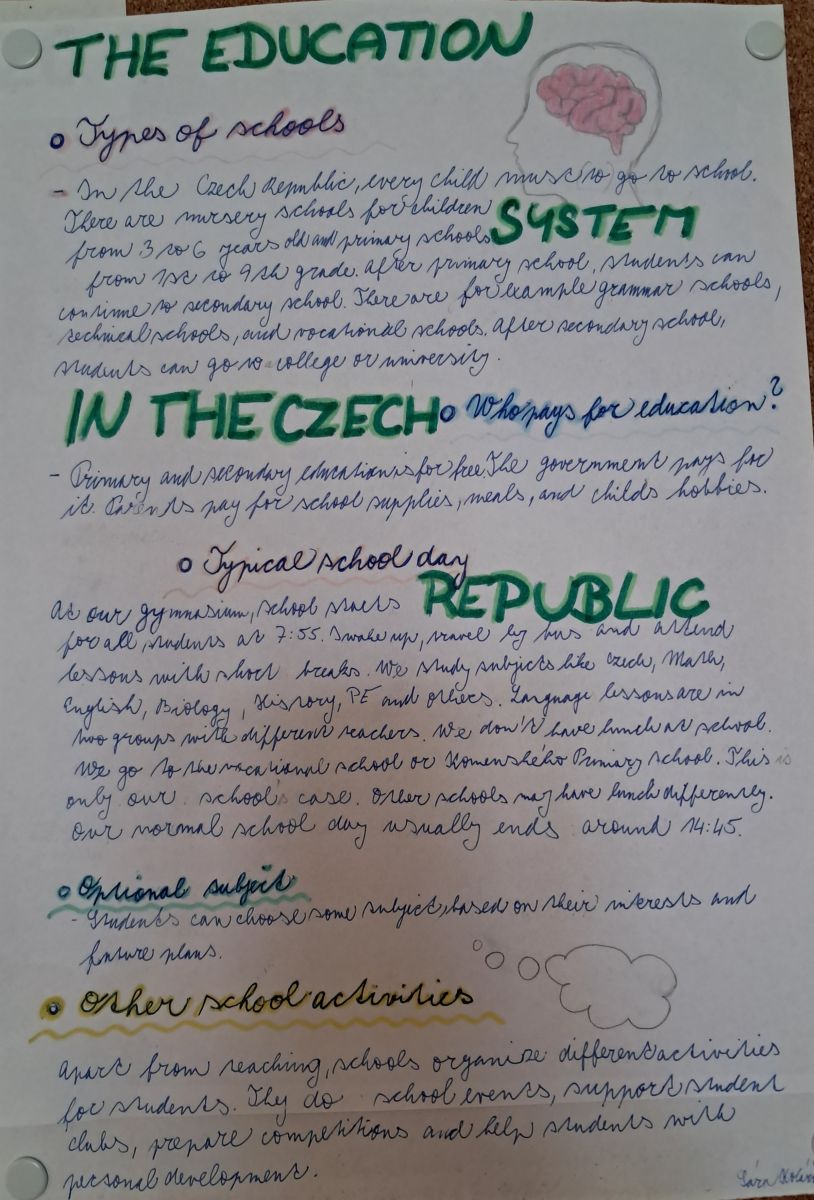 THE EDUCATION
Types of schools
- In the Czech Republic, every child must to go to school.
There are nursery schools for children
SYSTEM
from 3 to 6 years old and primary schools
from 1st to 9th grade. After primary school, students can
continue to secondary school. There are for example grammar schools,
technical schools, and vocational schools. After secondary school,
students can go to college or university.
IN THE CZECH
Who pays for education?
- Primary and secondary education is for free. The government pays for
it. Parents pay for school supplies, meals, and childs hobbies.
Typical school day
REPUBLIC
At our gymnasium, school starts
for all students at 7:55. I wake up, travel by bus and attend
lessons with short breaks. We study subjects like Czech, Math,
English, Biology, History, PE and others. Language lessons are in
two groups with different teachers. We don't have lunch at school.
We go to the vocational school or Komenského Primary school. This is
only our school's case. Other schools may have lunch differently.
Our normal school day usually ends around 14:45.
Optional subject
- Students can choose some subject, based on their interests and
future plans.
Other school activities
Apart from teaching, schools organize different activities
for students. They do school events, support student
clubs, prepare competitions and help students with
personal development.
Sára